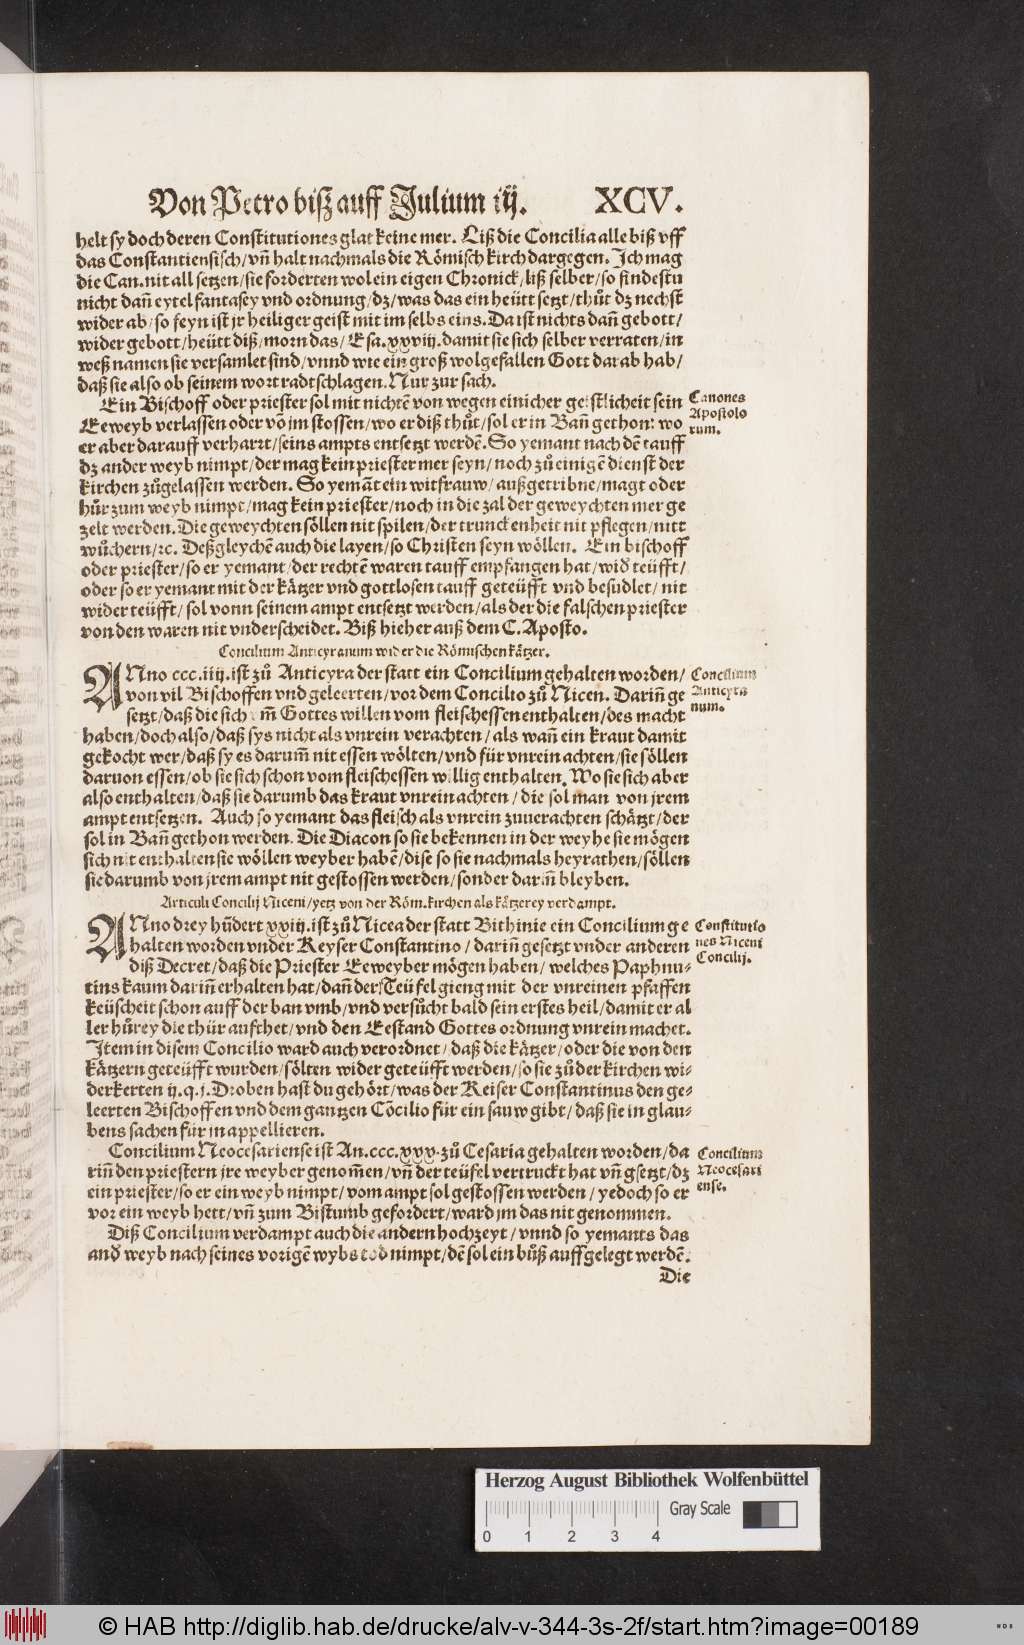 Von Petro biß auff Julium iij. XCV.
helt sy doch deren Constitutiones glat keine mer. Liß die Concilia alle biß vff
das Constantiensisch/ vñ halt nachmals die Römisch kirch dargegen. Ich mag
die Can. nit all setzen/ sie forderten wol ein eigen Chronick/ liß selber/ so findestu
nicht dañ eytel fantasey vnd ordnung/ dz/ was das ein heütt setzt/ thůt dz nechst
wider ab/ so feyn ist jr heiliger geist mit im selbs eins. Da ist nichts dañ gebott/
wider gebott/ heütt diß/ morn das/ Esa. xxviij. damit sie sich selber verraten/ in
weß namen sie versamlet sind/ vnnd wie ein groß wolgefallen Gott darab hab/
daß sie also ob seinem wort radtschlagen. Nur zur sach.
Ein Bischoff oder priester sol mit nichtẽ von wegen einicher geistlicheit sein
Eeweyb verlassen oder võ jm stossen/ wo er diß thůt/ sol er in Bañ gethon: wo
er aber darauff verharrt/ seins ampts entsetzt werdẽ. So yemant nach dẽ tauff
dz ander weyb nimpt/ der mag kein priester mer seyn/ noch zů einigẽ dienst der
kirchen zůgelassen werden. So yemãt ein witfrauw/ außgetribne/ magt oder
hůr zum weyb nimpt/ mag kein priester/ noch in die zal der geweychten mer ge
zelt werden. Die geweychten söllen nit spilen/ der trunckenheit nit pflegen/ nitt
wůchern/ ꝛc. Deßgleychẽ auch die layen/ so Christen seyn wöllen. Ein bischoff
oder priester/ so er yemant/ der rechtẽ waren tauff empfangen hat/ wid' teüfft/
oder so er yemant mit der kätzer vnd gottlosen tauff geteüfft vnd besudlet/ nit
wider teüfft/ sol vonn seinem ampt entsetzt werden/ als der die falschen priester
von den waren nit vnderscheidet. Biß hieher auß dem C. Aposto.
Canones
Apostolo
rum.
Concilium Anticyranum wider die Römischen kätzer.
ANno ccc.iiij. ist zů Anticyra der statt ein Concilium gehalten worden/
von vil Bischoffen vnd geleerten/ vor dem Concilio zů Nicen. Dariñ ge
setzt/ daß die sich vm̃ Gottes willen vom fleischessen enthalten/ des macht
haben/ doch also/ daß sys nicht als vnrein verachten/ als wañ ein kraut damit
gekocht wer/ daß sy es darum̃ nit essen wölten/ vnd für vnrein achten/ sie söllen
daruon essen/ ob sie sich schon vom fleischessen willig enthalten. Wo sie sich aber
also enthalten/ daß sie darumb das kraut vnrein achten/ die sol man von jrem
ampt entsetzen. Auch so yemant das fleisch als vnrein zuuerachten schätzt/ der
sol in Bañ gethon werden. Die Diacon so sie bekennen in der weyhe sie mögen
sich nit enthalten sie wöllen weyber habẽ/ dise so sie nachmals heyrathen/ söllen
sie darumb von jrem ampt nit gestossen werden/ sonder dariñ bleyben.
Concilium
Anticyra
num.
Articuli Concilij Niceni/ yetz von der Röm. kirchen als kätzerey verdampt.
ANno drey hũdert xxiij. ist zů Nicea der statt Bithinie ein Concilium ge
halten worden vnder Keyser Constantino/ dariñ gesetzt vnder anderen
diß Decret/ daß die Priester Eeweyber mögen haben/ welches Paphnu-
tins kaum dariñ erhalten hat/ dañ der Teüfel gieng mit der vnreinen pfaffen
keüscheit schon auff der ban vmb/ vnd versůcht bald sein erstes heil/ damit er al
ler hůrey die thür aufthet/ vnd den Eestand Gottes ordnung vnrein machet.
Item in disem Concilio ward auch verordnet/ daß die kätzer/ oder die von den
kätzern geteüfft wurden/ sölten wider geteüfft werden/ so sie zů der kirchen wi-
derkerten ij. q. j. Droben hast du gehört/ was der Keiser Constantinus den ge-
leerten Bischoffen vnd dem gantzen Cõcilio für ein sauw gibt/ daß sie in glau-
bens sachen für in appellieren.
Constitutio
nes Niceni
Concilij.
Concilium Neocesariense ist An. ccc.xxx. zů Cesaria gehalten worden/ da
riñ den priestern jre weyber genom̃en/ vñ der teüfel vertruckt hat vñ gsetzt/ dz
ein priester/ so er ein weyb nimpt/ vom ampt sol gestossen werden/ yedoch so er
vor ein weyb hett/ vñ zum Bistumb gefordert/ ward jm das nit genommen.
Concilium
Neocesari
ense.
Diß Concilium verdampt auch die andern hochzeyt/ vnnd so yemants das
and' weyb nach seines vorigẽ wybs tod nimpt/ dẽ sol ein bůß auffgelegt werdẽ.
Die
Herzog August Bibliothek Wolfenbüttel
Gray Scale
0 1 2 3 4
© HAB http://diglib.hab.de/drucke/alv-v-344-3s-2f/start.htm?image=00189